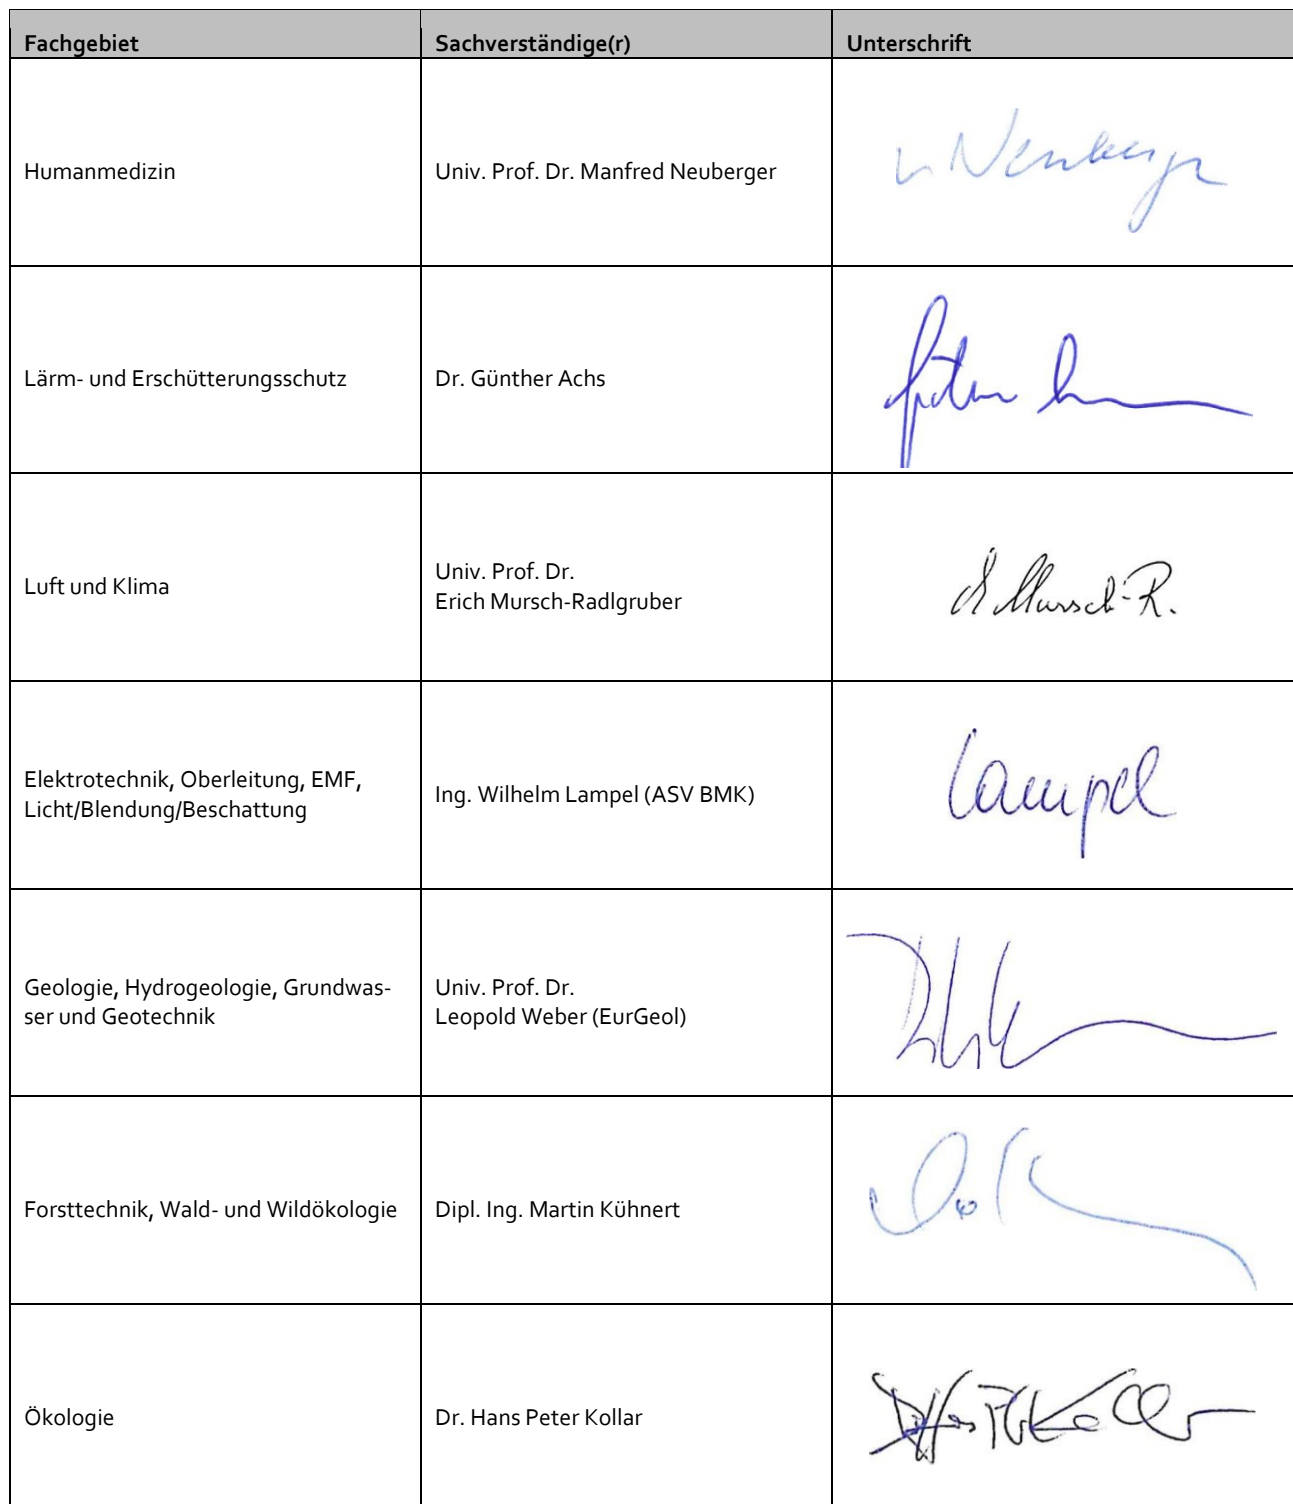 Fachgebiet Sachverständige(r) Unterschrift
Humanmedizin Univ. Prof. Dr. Manfred Neuberger Neuberger
Lärm- und Erschütterungsschutz Dr. Günther Achs
Luft und Klima
Univ. Prof. Dr.
Erich Mursch-Radlgruber
Mursch-R.
Elektrotechnik, Oberleitung, EMF,
Licht/Blendung/Beschattung
Ing. Wilhelm Lampel (ASV BMK)
Lampel
Geologie, Hydrogeologie, Grundwas-
ser und Geotechnik
Univ. Prof. Dr.
Leopold Weber (EurGeol)
Forsttechnik, Wald- und Wildökologie Dipl. Ing. Martin Kühnert
Ökologie Dr. Hans Peter Kollar